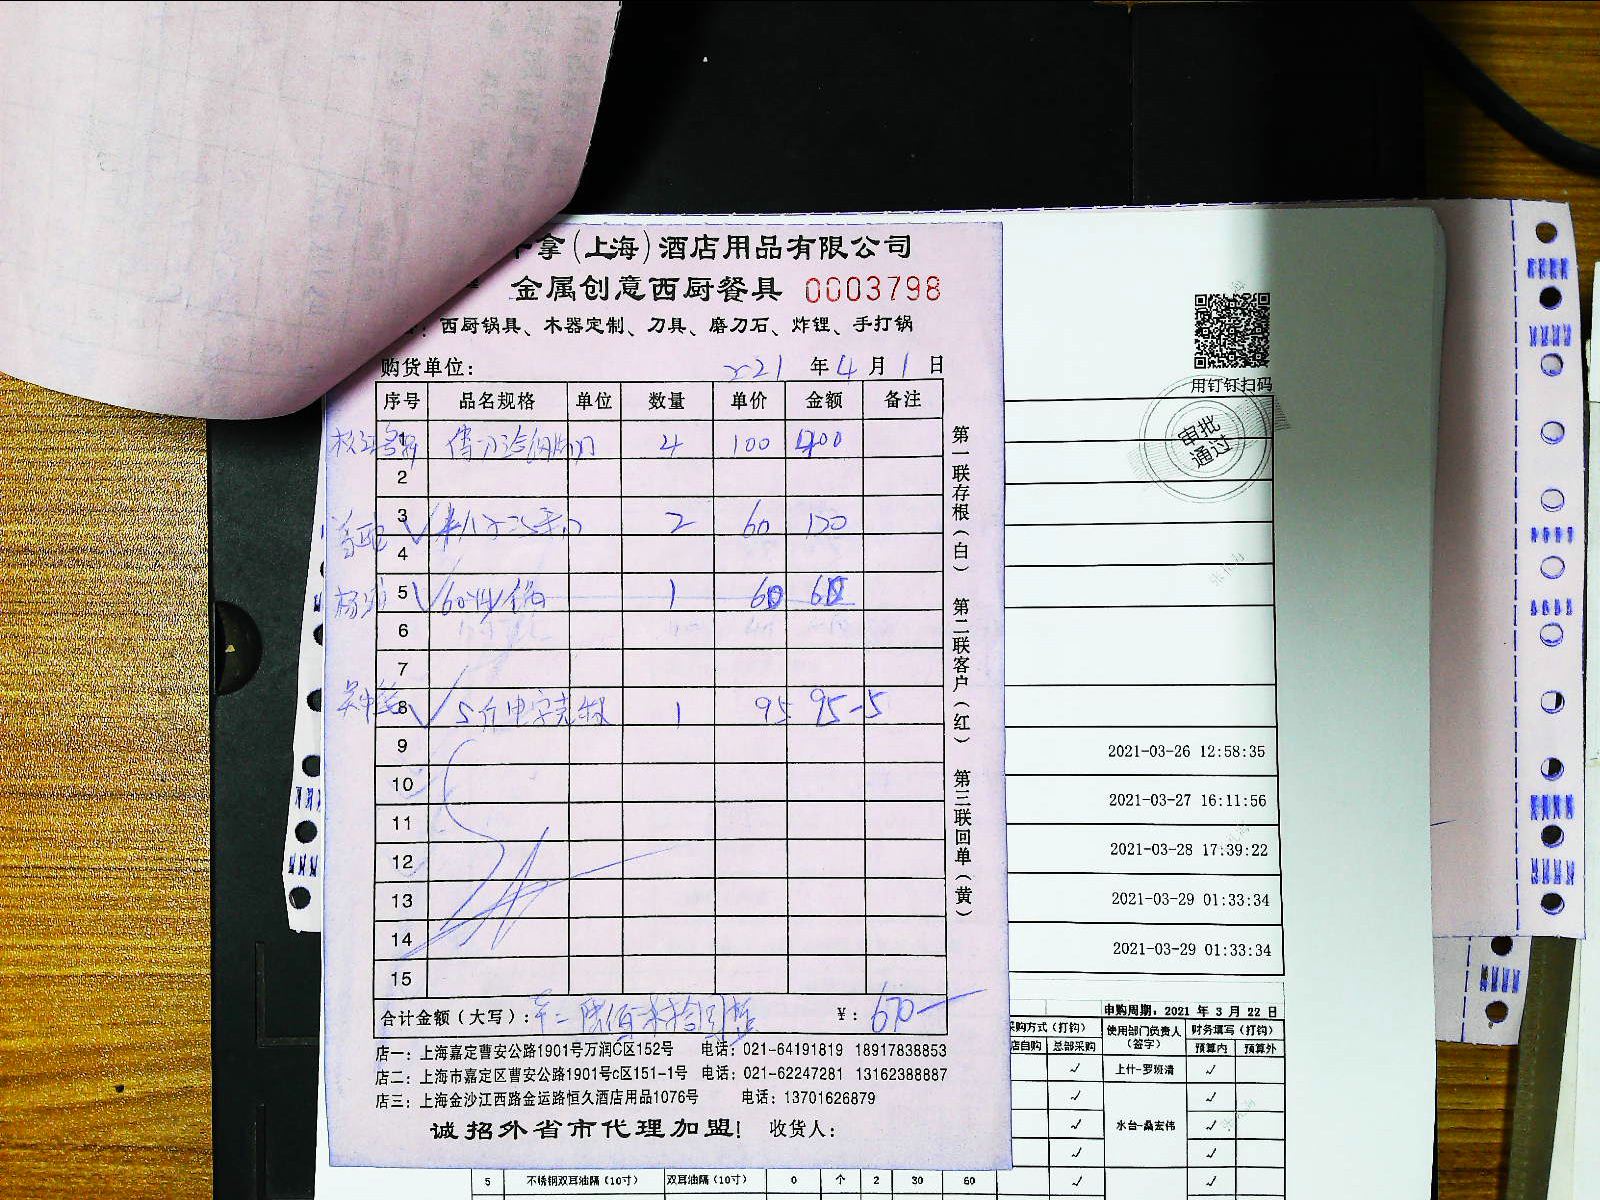 拿(上海)酒店用品有限公司
金属创意西厨餐具 0003798
西厨锅具、木器定制、刀具、磨刀石、炸锂、手打锅
购货单位: 2021 年 4 月 1 日
序号 品名规格 单位 数量 单价 金额 备注
1 4 100 400
2
3 2 60 120
4
5 60 锅 1 60 60
6
7
8 5斤电子克称 1 95 95-5
9
10
11
12
13
14
15
合计金额(大写): 陆佰柒拾 整 ¥: 670
店一: 上海嘉定曹安公路1901号万润C区152号 电话: 021-64191819 18917838853
店二: 上海市嘉定区曹安公路1901号c区151-1号 电话: 021-62247281 13162388887
店三: 上海金沙江西路金运路恒久酒店用品1076号 电话: 13701626879
诚招外省市代理加盟! 收货人:
第一联存根(白) 第二联客户(红) 第三联回单(黄)
用钉钉扫码
审批
通过
2021-03-26 12:58:35
2021-03-27 16:11:56
2021-03-28 17:39:22
2021-03-29 01:33:34
2021-03-29 01:33:34
申购周期: 2021 年 3 月 22 日
采购方式(打钩) 使用部门负责人(签字) 财务填写(打钩)
店自购 总部采购 预算内 预算外
✓ 上什-罗班清 ✓
✓ ✓
✓ 水台-桑宏伟 ✓
✓ ✓
5 不锈钢双耳油隔(10寸) 双耳油隔(10寸) 0 个 2 30 60 ✓ ✓